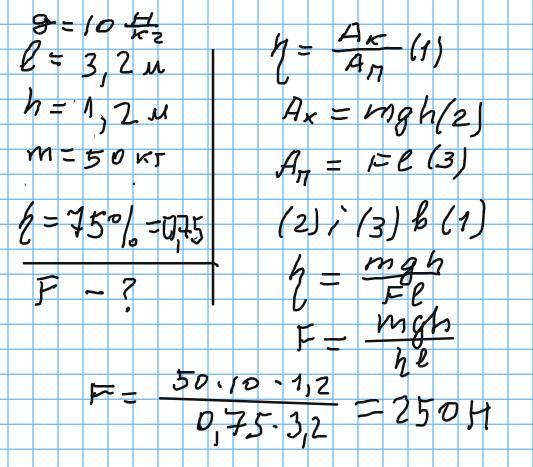 g = 10 Н/кг
l = 3,2 м
h = 1,2 м
m = 50 кг
η = 75% = 0,75
F - ?
η = Aк/Aп (1)
Aк = mgh (2)
Aп = Fl (3)
(2) і (3) в (1)
η = mgh/Fl
F = mgh/ηl
F = 50·10·1,2/0,75·3,2 = 250 Н